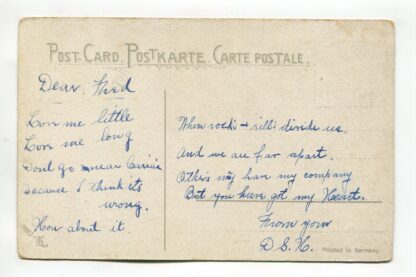 POST-CARD. POSTKARTE. CARTE POSTALE.
Dear Fred
Love me little
Love me long
Dont go near
because I think its
wrong.
How about it.
When rocks + rills divide us.
And we are far apart.
Others may have my company
But you have got my Heart.
From your
D.S.H.
Printed in Germany.